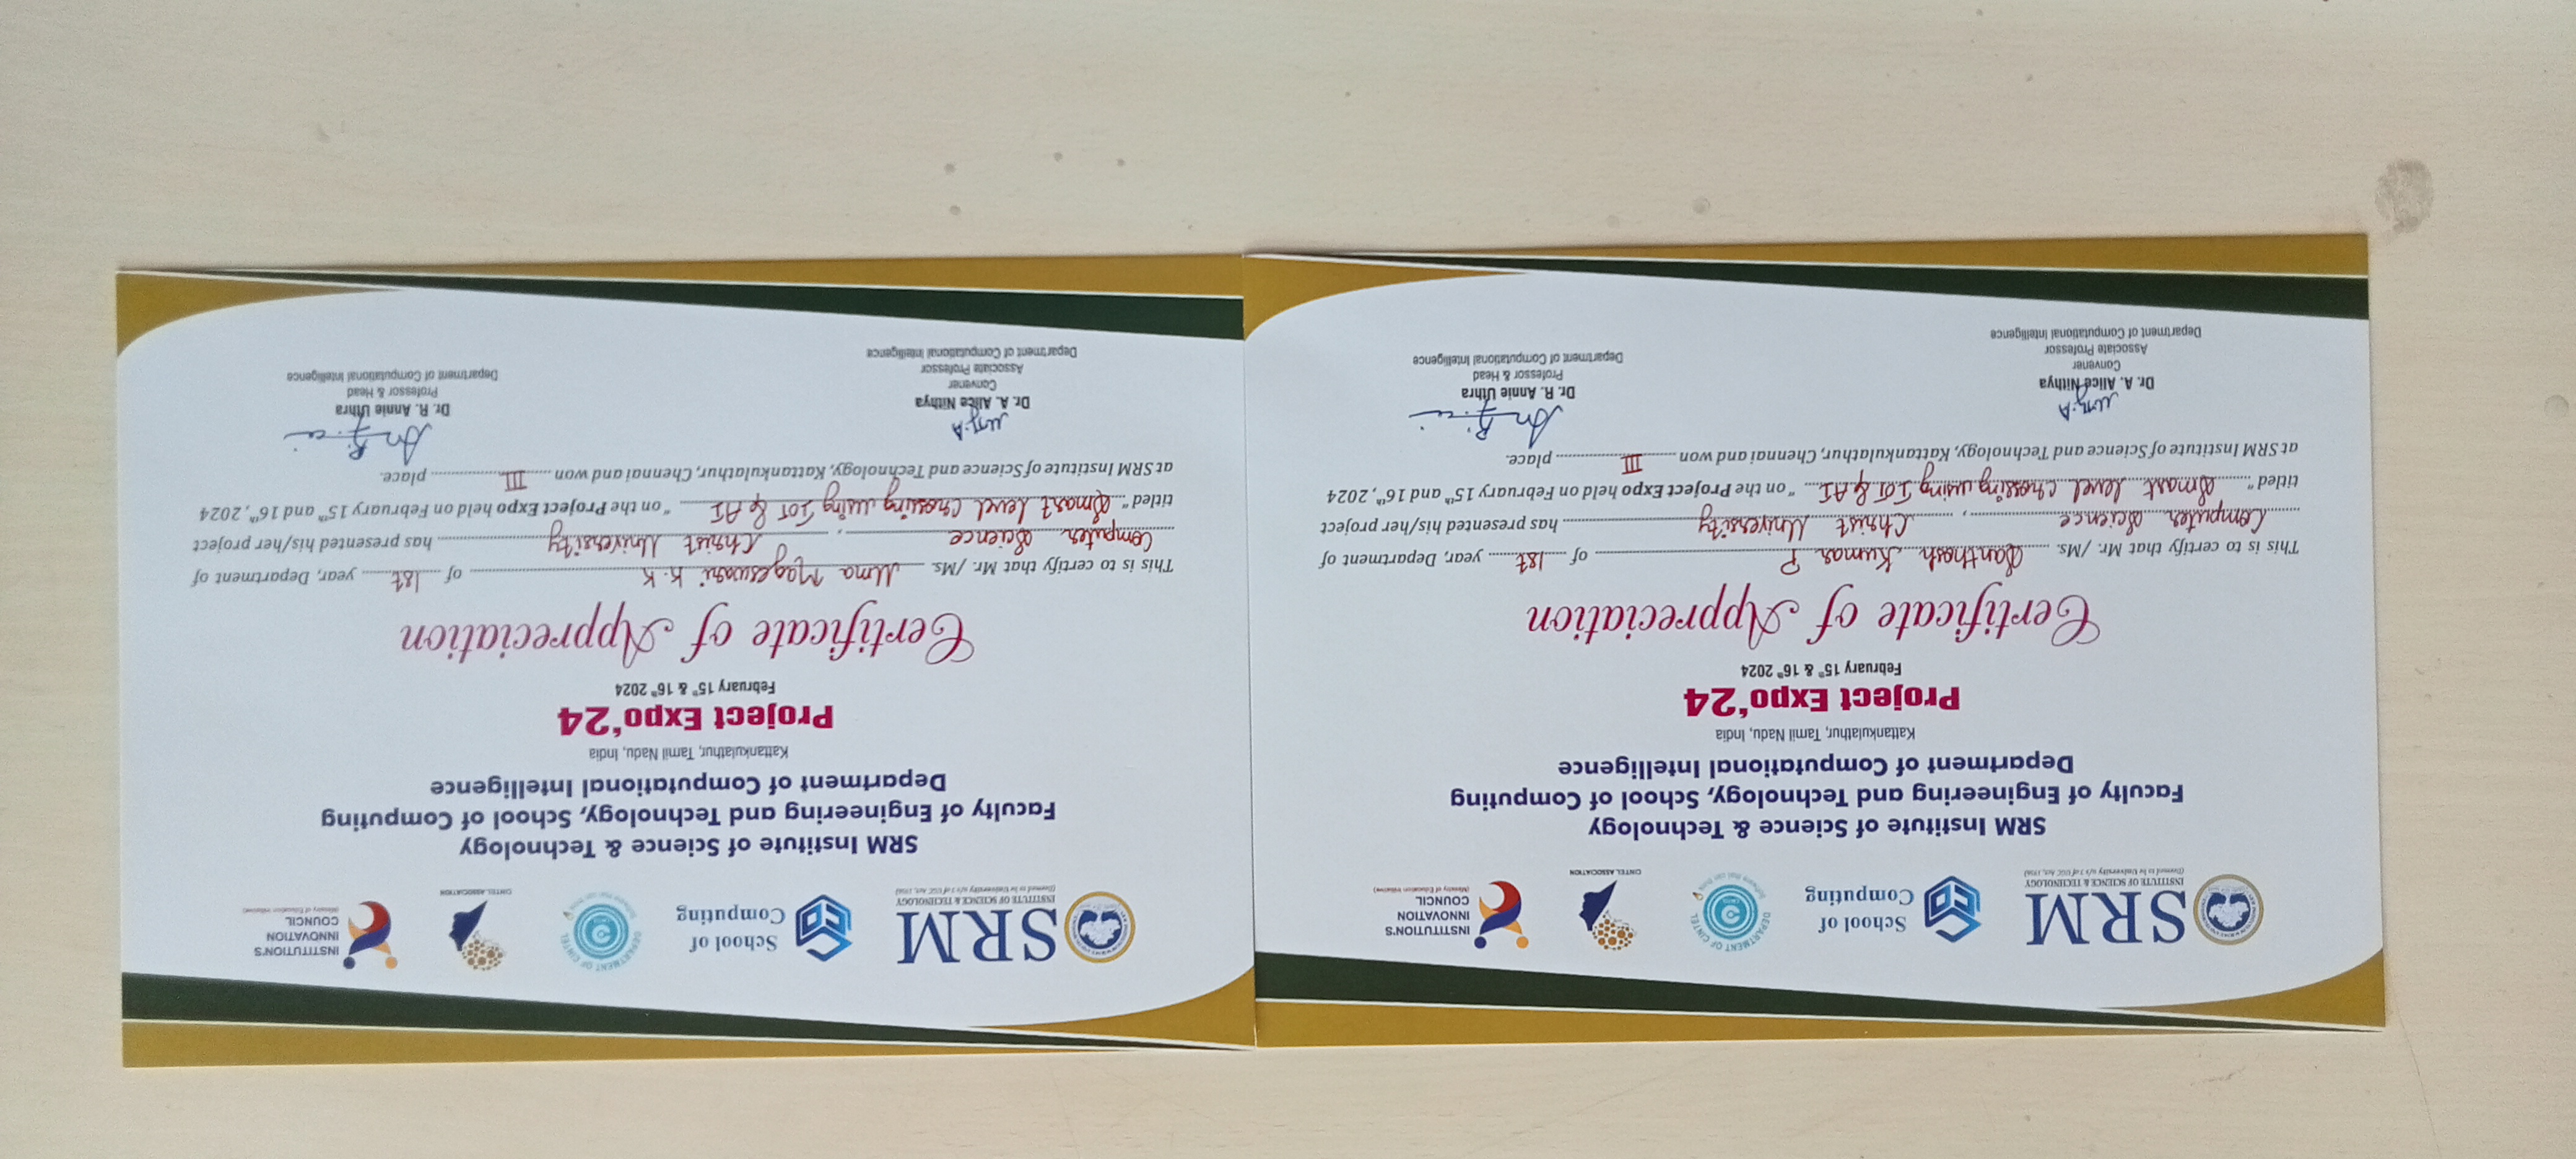 SRM
INSTITUTE OF SCIENCE & TECHNOLOGY
(Deemed to be University u/s 3 of UGC Act, 1956)
School of
Computing
DEPARTMENT OF CINTEL
CINTEL ASSOCIATION
INSTITUTION'S
INNOVATION
COUNCIL
(Ministry of Education Initiative)
SRM Institute of Science & Technology
Faculty of Engineering and Technology, School of Computing
Department of Computational Intelligence
Kattankulathur, Tamil Nadu, India
Project Expo‘24
February 15th & 16th 2024
Certificate of Appreciation
This is to certify that Mr. /Ms. Santhosh Kumar P of 1st year, Department of
Computer Science, Christ University has presented his/her project
titled “ Smart level crossing using IoT & AI “ on the Project Expo held on February 15th and 16th, 2024
at SRM Institute of Science and Technology, Kattankulathur, Chennai and won III place.
Dr. A. Alice Nithya
Convener
Associate Professor
Department of Computational Intelligence
Dr. R. Annie Uthra
Professor & Head
Department of Computational Intelligence
SRM
INSTITUTE OF SCIENCE & TECHNOLOGY
(Deemed to be University u/s 3 of UGC Act, 1956)
School of
Computing
DEPARTMENT OF CINTEL
CINTEL ASSOCIATION
INSTITUTION'S
INNOVATION
COUNCIL
(Ministry of Education Initiative)
SRM Institute of Science & Technology
Faculty of Engineering and Technology, School of Computing
Department of Computational Intelligence
Kattankulathur, Tamil Nadu, India
Project Expo‘24
February 15th & 16th 2024
Certificate of Appreciation
This is to certify that Mr. /Ms. Uma Mageswari K.K of 1st year, Department of
Computer Science, Christ University has presented his/her project
titled “ Smart level crossing using IoT & AI “ on the Project Expo held on February 15th and 16th, 2024
at SRM Institute of Science and Technology, Kattankulathur, Chennai and won III place.
Dr. A. Alice Nithya
Convener
Associate Professor
Department of Computational Intelligence
Dr. R. Annie Uthra
Professor & Head
Department of Computational Intelligence